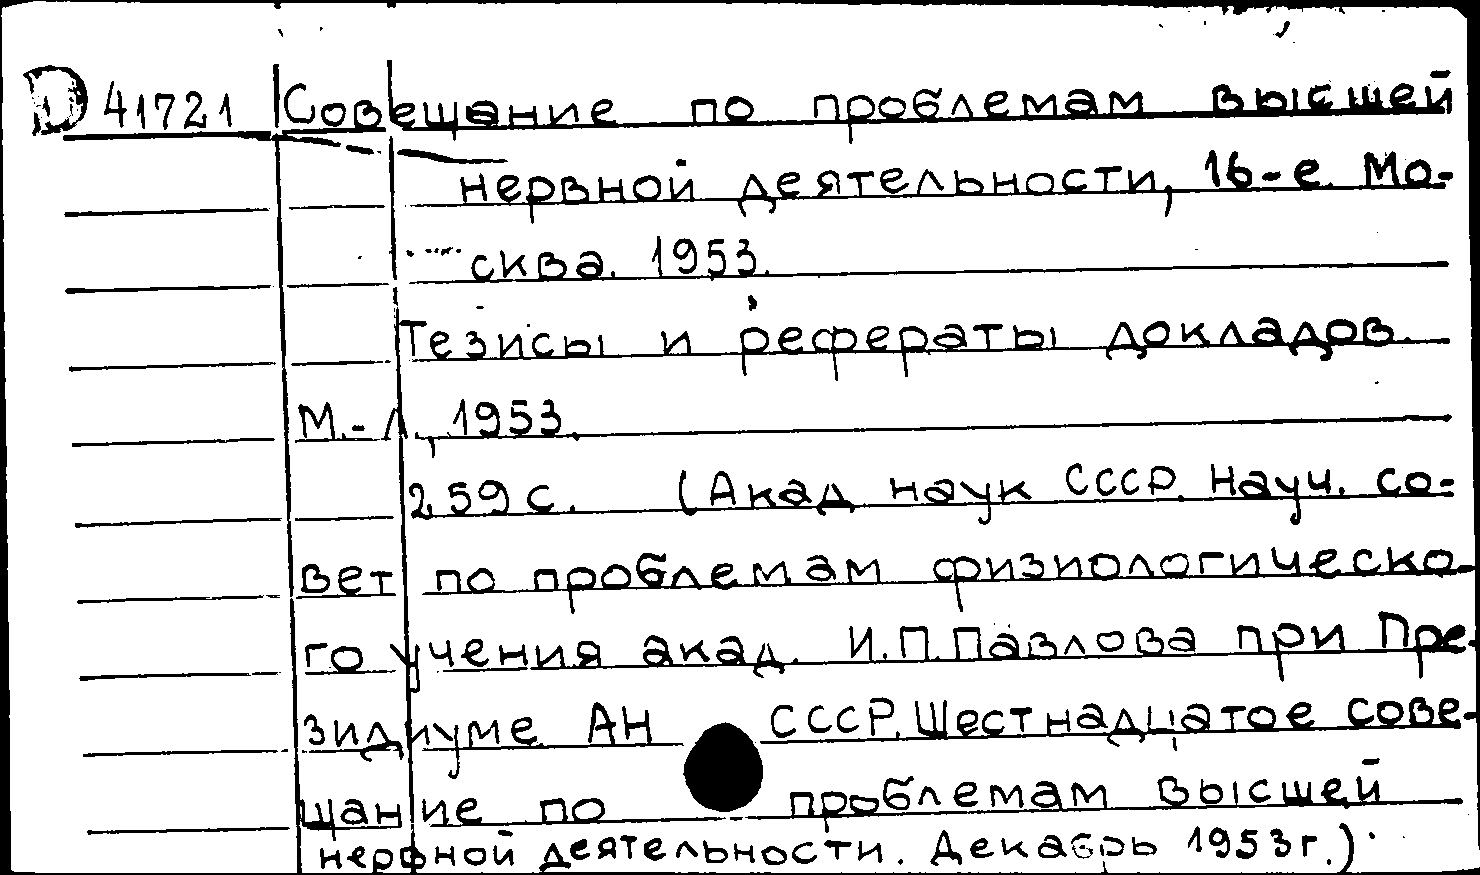 D 41721 Совещание по проблемам высшей
нервной деятельности, 16-е. Мо-
сква. 1953.
Тезисы и рефераты докладов.
М.-Л., 1953.
259 с. (Акад наук СССР. Науч. со-
вет по проблемам физиологическо-
го учения акад. И.П.Павлова при Пре-
зидиуме АН СССР. Шестнадцатое сове-
щание по проблемам высшей
нервной деятельности. Декабрь 1953г.)